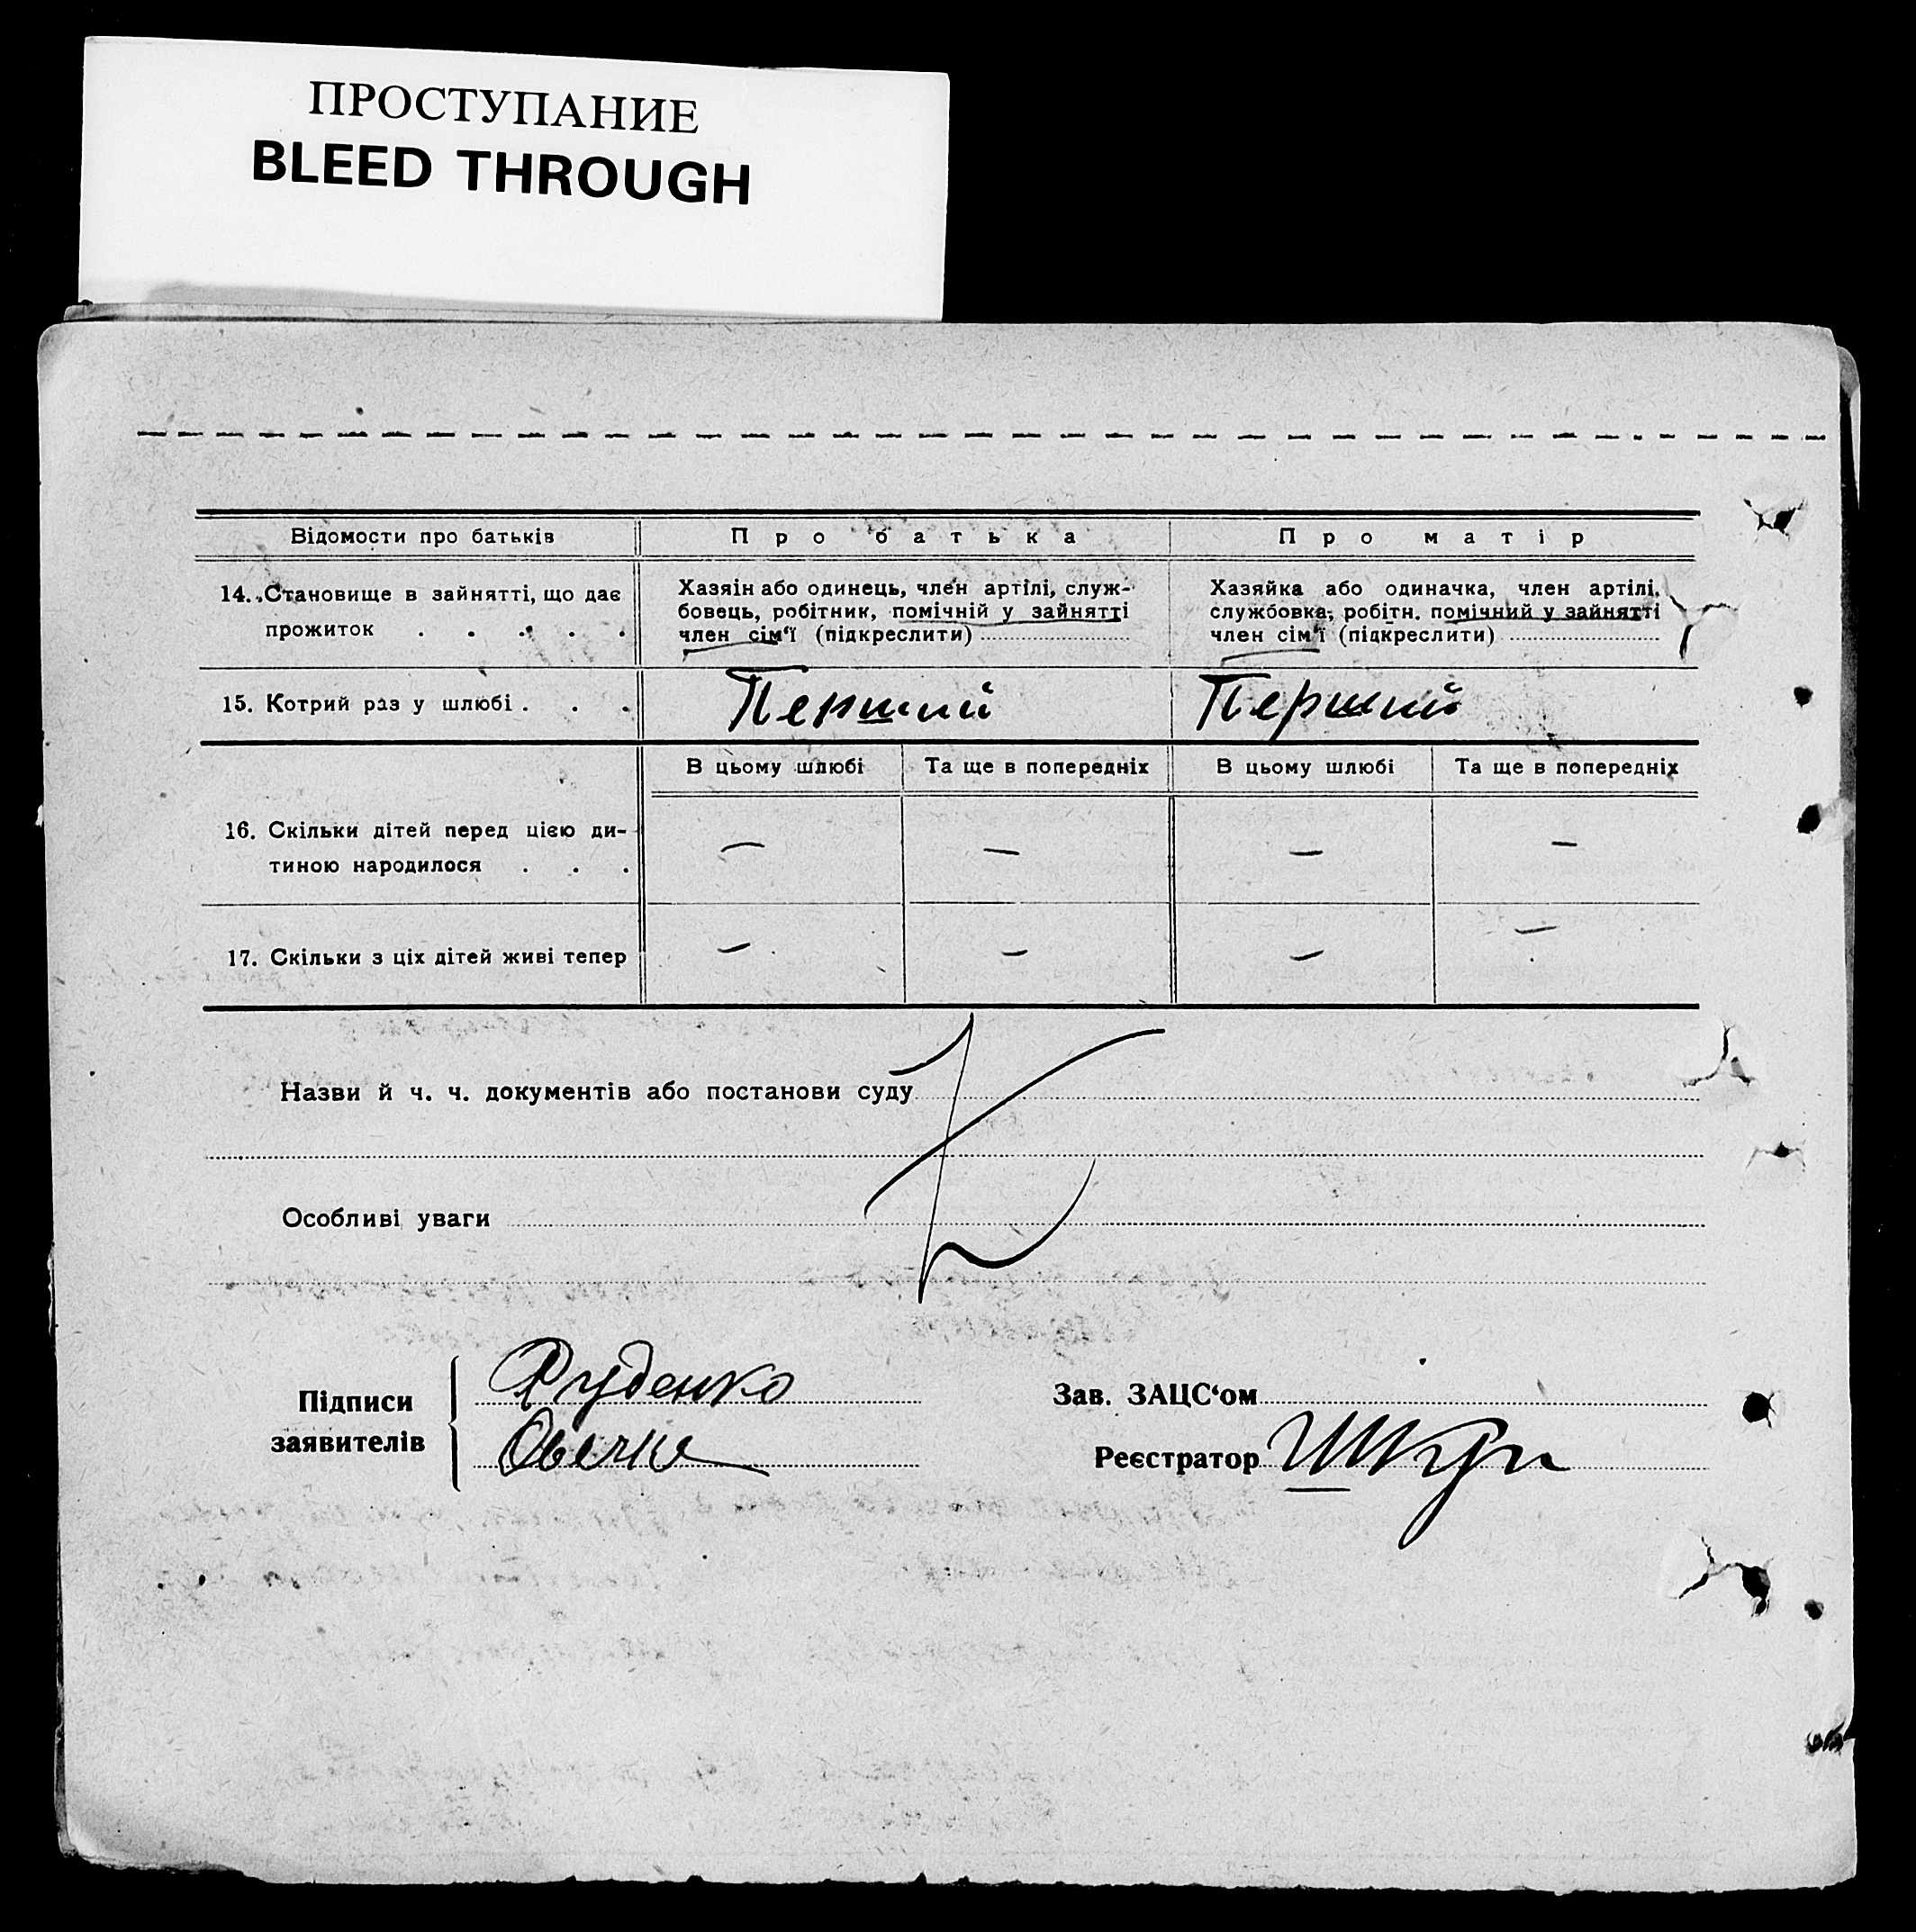 ПРОСТУПАНИЕ
BLEED THROUGH
Відомости про батьків
Про батька
Про матір
14. Становище в зайнятті, що дає
прожиток . . . . .
Хазяїн або одинець, член артілі, служ-
бовець, робітник, помічній у зайнятті
член сім‘ї (підкреслити)
Хазяйка або одиначка, член артілі,
службовка, робітн. помічний у зайнятті
член сім‘ї (підкреслити)
15. Котрий раз у шлюбі . . .
Перший
Перший
В цьому шлюбі
Та ще в попередніх
В цьому шлюбі
Та ще в попередніх
16. Скільки дітей перед цією ди-
тиною народилося . . .
— — — —
17. Скільки з ціх дітей живі тепер
— — — —
Назви й ч. ч. документів або постанови суду
Особливі уваги
Підписи
заявителів
Руденко
Зав. ЗАЦС‘ом
Реєстратор